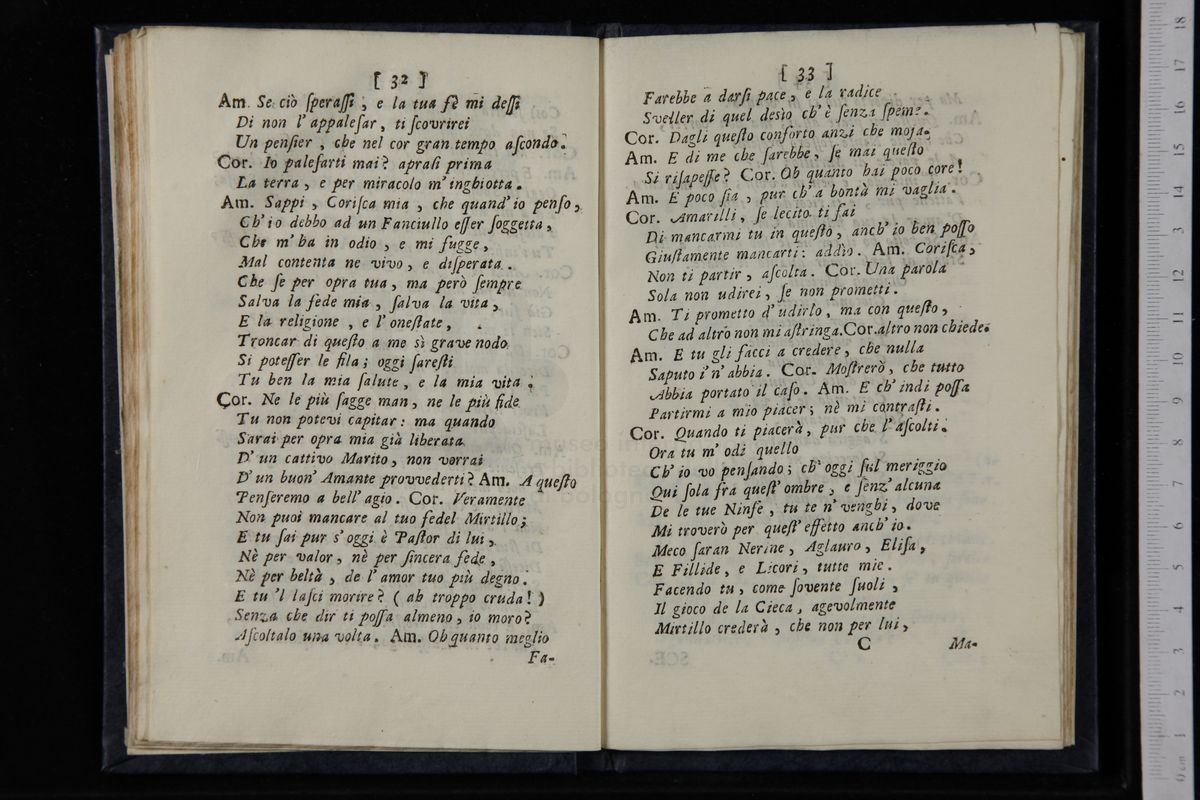 [ 32 ]
Am. Se ciò ſperaſſi, e la tua fè mi deſſi
Di non l' appaleſar, ti ſcovrirei
Un penſier, che nel cor gran tempo aſcondo.
Cor. Io paleſarti mai? apraſi prima
La terra, e per miracolo m' inghiotta.
Am. Sappi, Coriſca mia, che quand' io penſo,
Ch' io debbo ad un Fanciullo eſſer ſoggetta,
Che m' ha in odio, e mi fugge,
Mal contenta ne vivo, e diſperata.
Che ſe per opra tua, ma però ſempre
Salva la fede mia, ſalva la vita,
E la religione, e l' oneſtate,
Troncar di queſto a me sì grave nodo
Si poteſſer le fila; oggi ſareſti
Tu ben la mia ſalute, e la mia vita.
Cor. Ne le più ſagge man, ne le più fide
Tu non potevi capitar: ma quando
Sarai per opra mia già liberata
D' un cattivo Marito, non vorrai
D' un buon' Amante provvederti? Am. A queſto
Penſeremo a bell' agio. Cor. Veramente
Non puoi mancare al tuo fedel Mirtillo;
E tu ſai pur s' oggi è Paſtor di lui,
Nè per valor, nè per ſincera fede,
Nè per beltà, de l' amor tuo più degno.
E tu 'l laſci morire? ( ah troppo cruda! )
Senza che dir ti poſſa almeno, io moro?
Aſcoltalo una volta. Am. Oh quanto meglio
Fa-
[ 33 ]
Farebbe a darſi pace, e la radice
Sveller di quel desìo ch' è ſenza ſpeme.
Cor. Dagli queſto conforto anzi che moja.
Am. E di me che ſarebbe, ſe mai queſto
Si riſapeſſe? Cor. Oh quanto hai poco core!
Am. E poco ſia, pur ch' a bontà mi vaglia.
Cor. Amarilli, ſe lecito ti fai
Di mancarmi tu in queſto, anch' io ben poſſo
Giuſtamente mancarti: addìo. Am. Coriſca,
Non ti partir, aſcolta. Cor. Una parola
Sola non udirei, ſe non prometti.
Am. Ti prometto d' udirlo, ma con queſto,
Che ad altro non mi aſtringa. Cor. altro non chiede.
Am. E tu gli facci a credere, che nulla
Saputo i' n' abbia. Cor. Moſtrerò, che tutto
Abbia portato il caſo. Am. E ch' indi poſſa
Partirmi a mio piacer; nè mi contraſti.
Cor. Quando ti piacerà, pur che l' aſcolti.
Ora tu m' odi quello
Ch' io vo penſando; ch' oggi ſul meriggio
Qui ſola fra queſt' ombre, e ſenz' alcuna
De le tue Ninfe, tu te n' venghi, dove
Mi troverò per queſt' effetto anch' io.
Meco ſaran Nerine, Aglauro, Eliſa,
E Fillide, e Licori, tutte mie.
Facendo tu, come ſovente ſuoli,
Il gioco de la Cieca, agevolmente
Mirtillo crederà, che non per lui,
C
Ma-